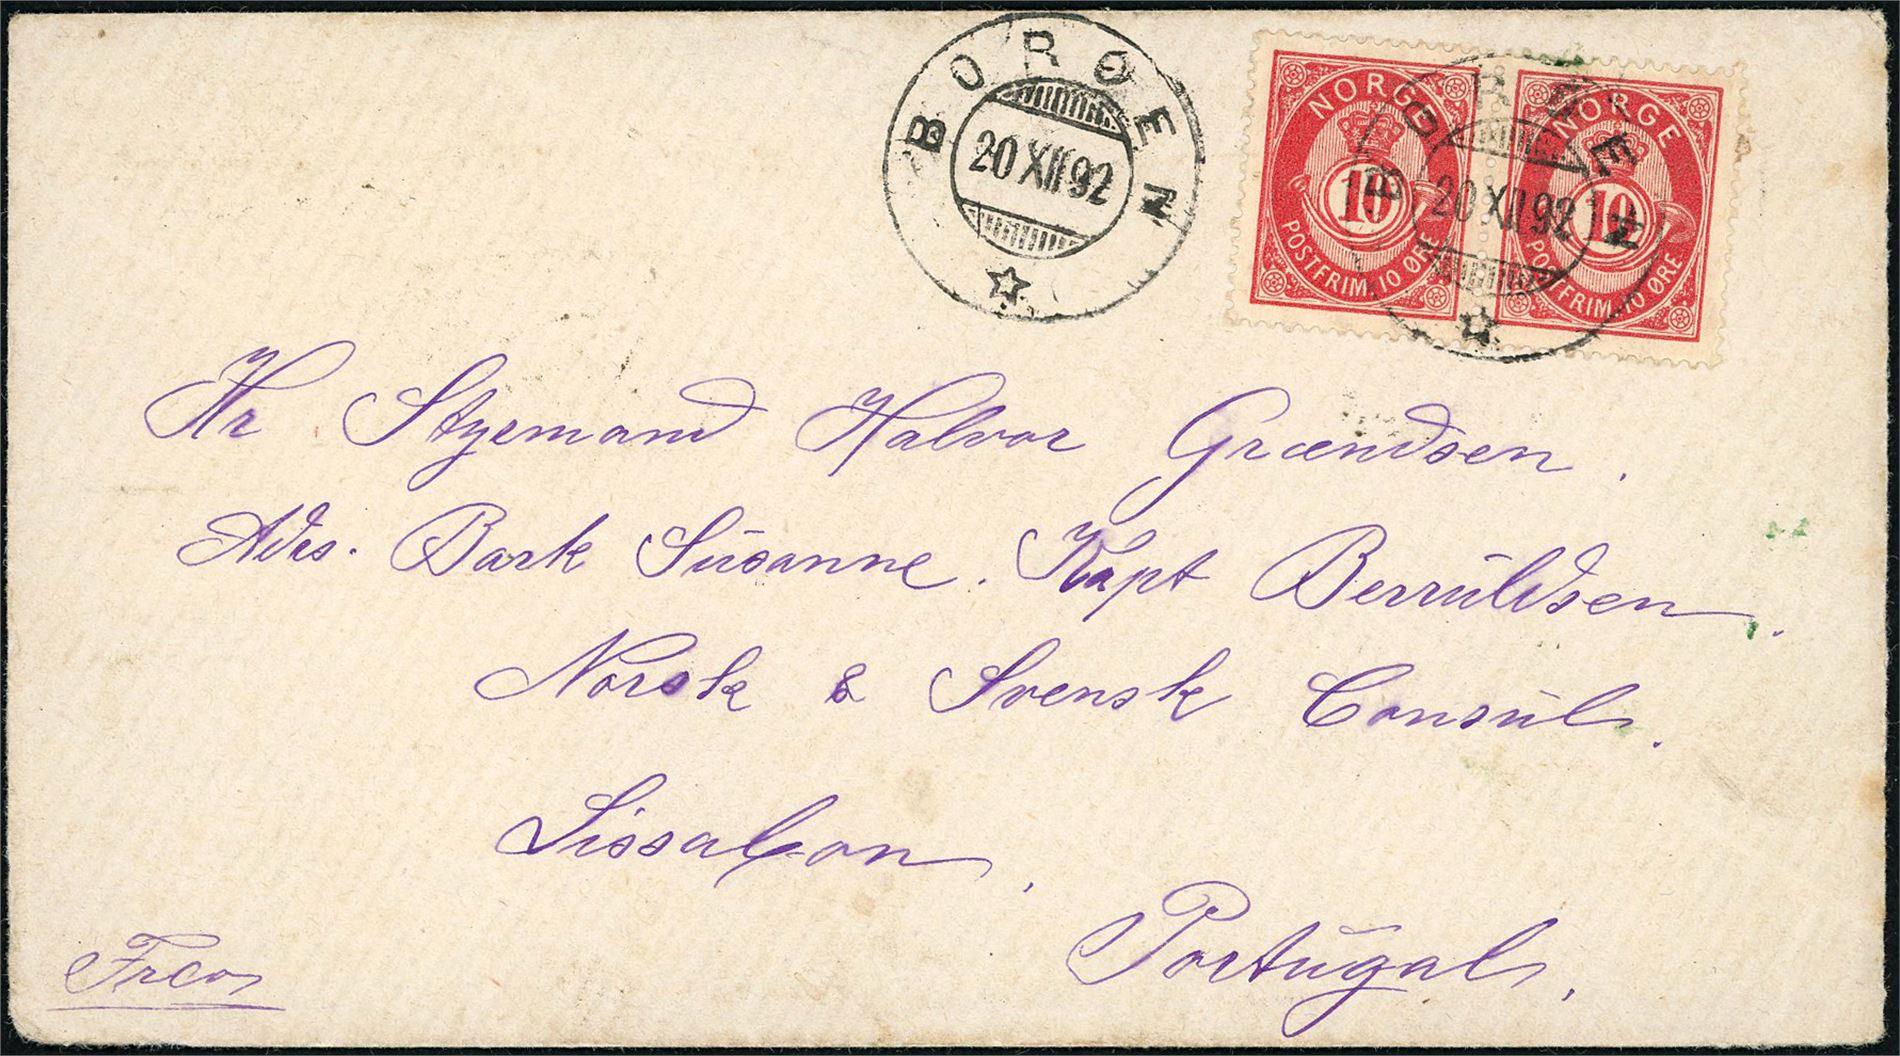 BORØEN
20 XII 92
NORGE
10
POSTFRIM. 10 ØRE
NORGE
10
POSTFRIM. 10 ØRE
BORØEN
20 XII 92
Hr Styrmand Halvor Grændsen.
Adrs. Bark Susanne. Kapt Berruldsen.
Norsk & Svensk Consul.
Lissabon.
Portugal.
Frco